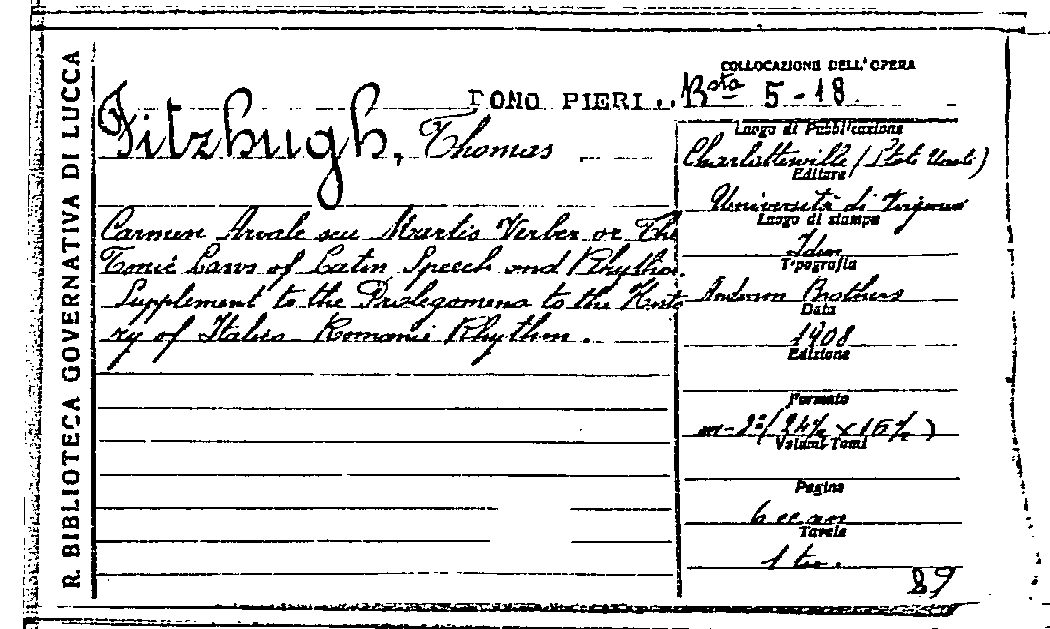 R. BIBLIOTECA GOVERNATIVA DI LUCCA
COLLOCAZIONE DELL'OPERA
DONO PIERI.. Bsta 5-18
Fitzhugh, Thomas
Carmen Arvale seu Martis Verber or The
Tonic Laws of Latin Speech and Rhythm.
Supplement to the Prolegomena to the Histo
ry of Italico-Romanic Rhythm.
Luogo di Pubblicazione
Charlotteville (Stati Uniti)
Editore
Università di Virginia
Luogo di stampa
Idem
Tipografia
Anderson Brothers
Data
1908
Edizione
Formato
in-8° (24½ x 16½)
Volumi-Tomi
Pagine
Tavole
1 tav.
89